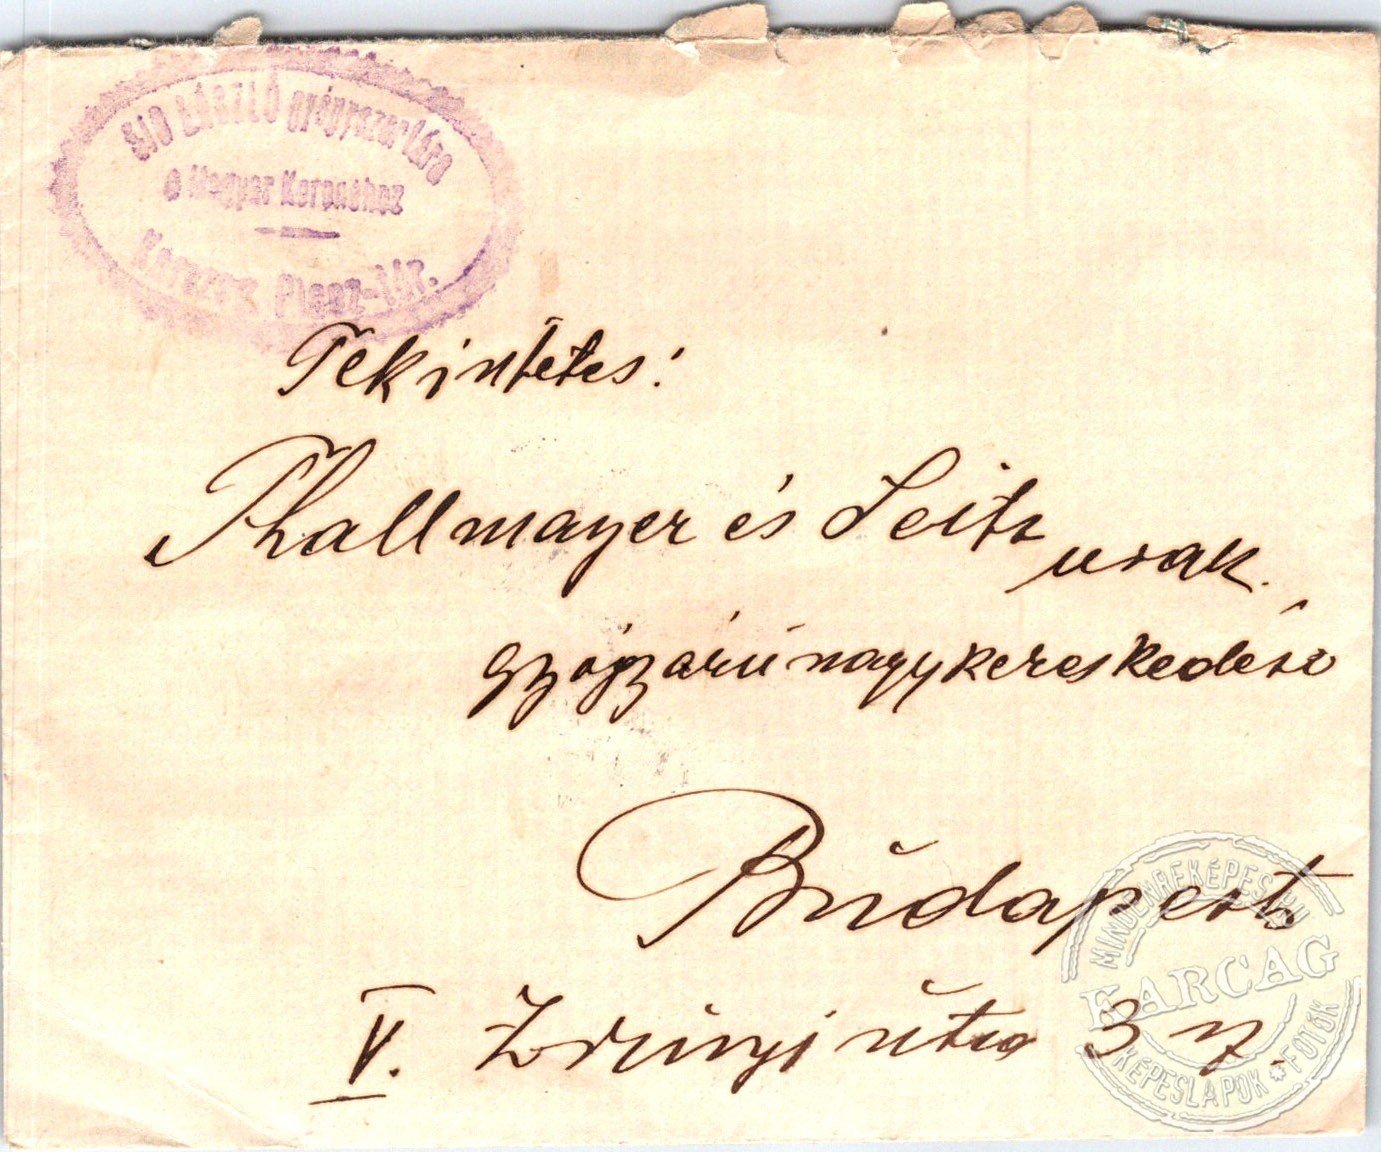 LÁSZLÓ gyógyszertára
a Magyar Koronához
Karczag, Piacz-tér.
Tekintetes:
Thallmayer és Seitz
urak.
gyógyárú nagykereskedése
Budapest
V. Zrinyi útca 3 sz.
MINDENREKÉPES.HU
KARCAG
KÉPESLAPOK * FOTÓK